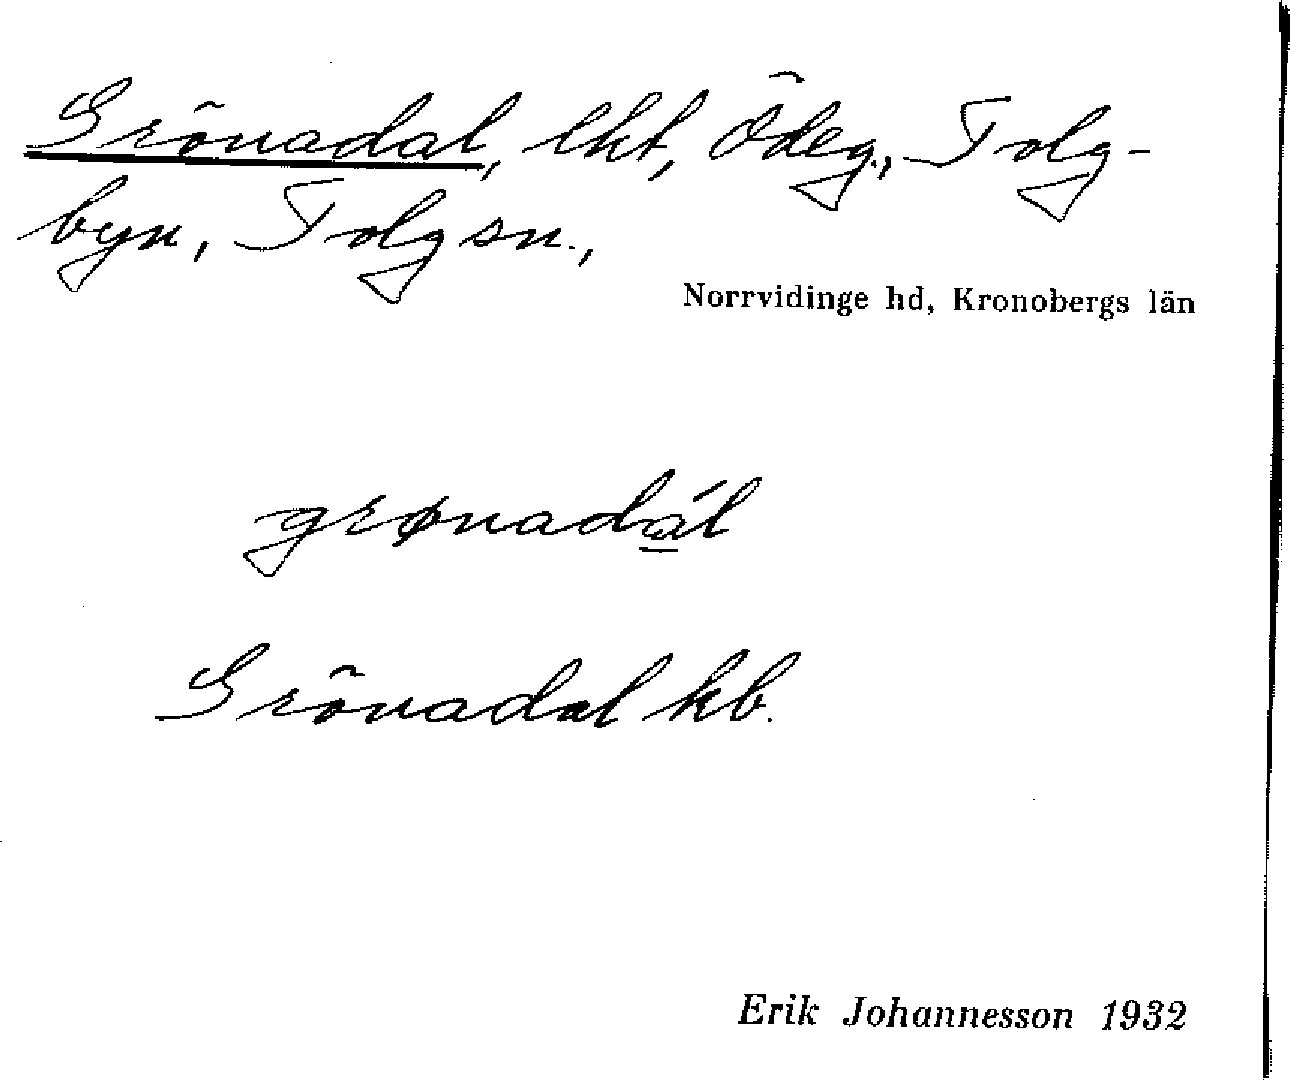 Grönadal, lht, Ödeg., Tolg-
byn, Tolg sn.,
Norrvidinge hd, Kronobergs län
grønadál
Grönadal kb.
Erik Johannesson 1932